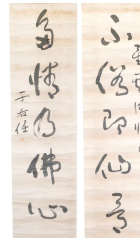 不俗即仙骨
多情乃佛心
于右任